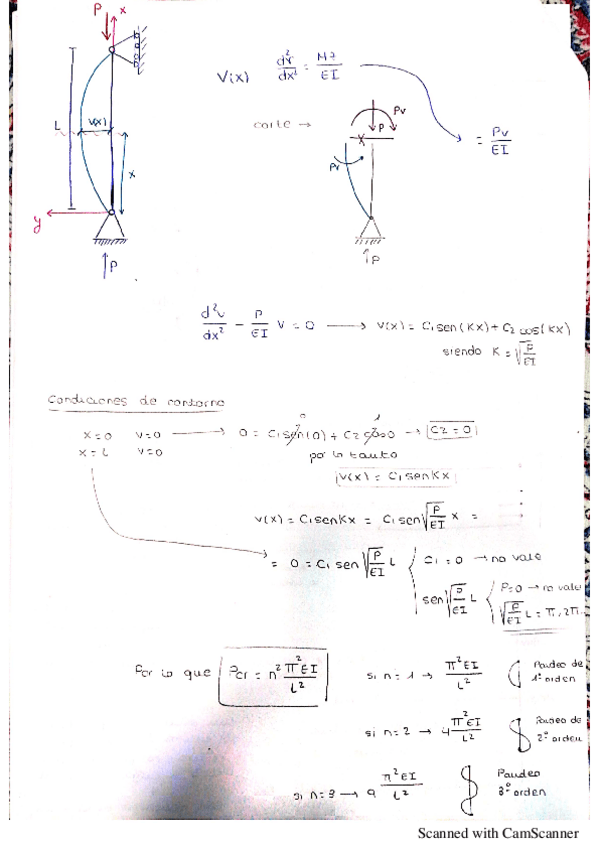 P
x
V(x) d²v/dx² = Mz/EI
L
v(x)
x
corte →
Pv
P
Pv
= Pv/EI
y
P
P
d²v/dx² - P/EI v = 0 → v(x) = C1 sen(Kx) + C2 cos(Kx)
siendo K = √P/EI
Condiciones de contorno
x=0 v=0 → 0 = C1 sen(0) + C2 cos 0 → C2 = 0
0 1
x=L v=0
por lo tanto
v(x) = C1 sen Kx
v(x) = C1 sen Kx = C1 sen √P/EI x =
= 0 = C1 sen √P/EI L
C1 = 0 → no vale
sen √P/EI L
P=0 → no vale
√P/EI L = π, 2π.
Por lo que Pcr = n² π²EI/L²
si n=1 → π²EI/L²
Pandeo de
1º orden
si n=2 → 4 π²EI/L²
Pandeo de
2º orden
si n=3 → 9 π²EI/L²
Pandeo
3º orden
Scanned with CamScanner